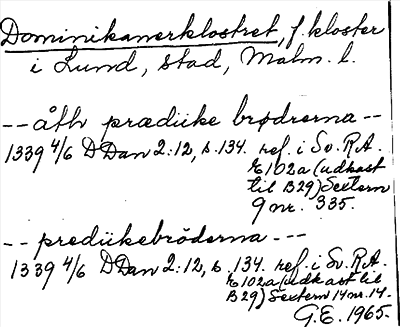 Dominikanerklostret, f. kloster
i Lund, stad, Malm. l.
-- åth prædiike brødrerna --
1339 4/6 DDan 2:12, s. 134. ref. i Sv. R.A.
E102a (udkast
til B29) Sextern
9 nr. 335.
-- prediikebröderna ---
1339 4/6 DDan 2:12, s. 134. ref. i Sv. R.A.
E102a (udkast til
B29) Sextern 14 nr. 14.
G.E. 1965.